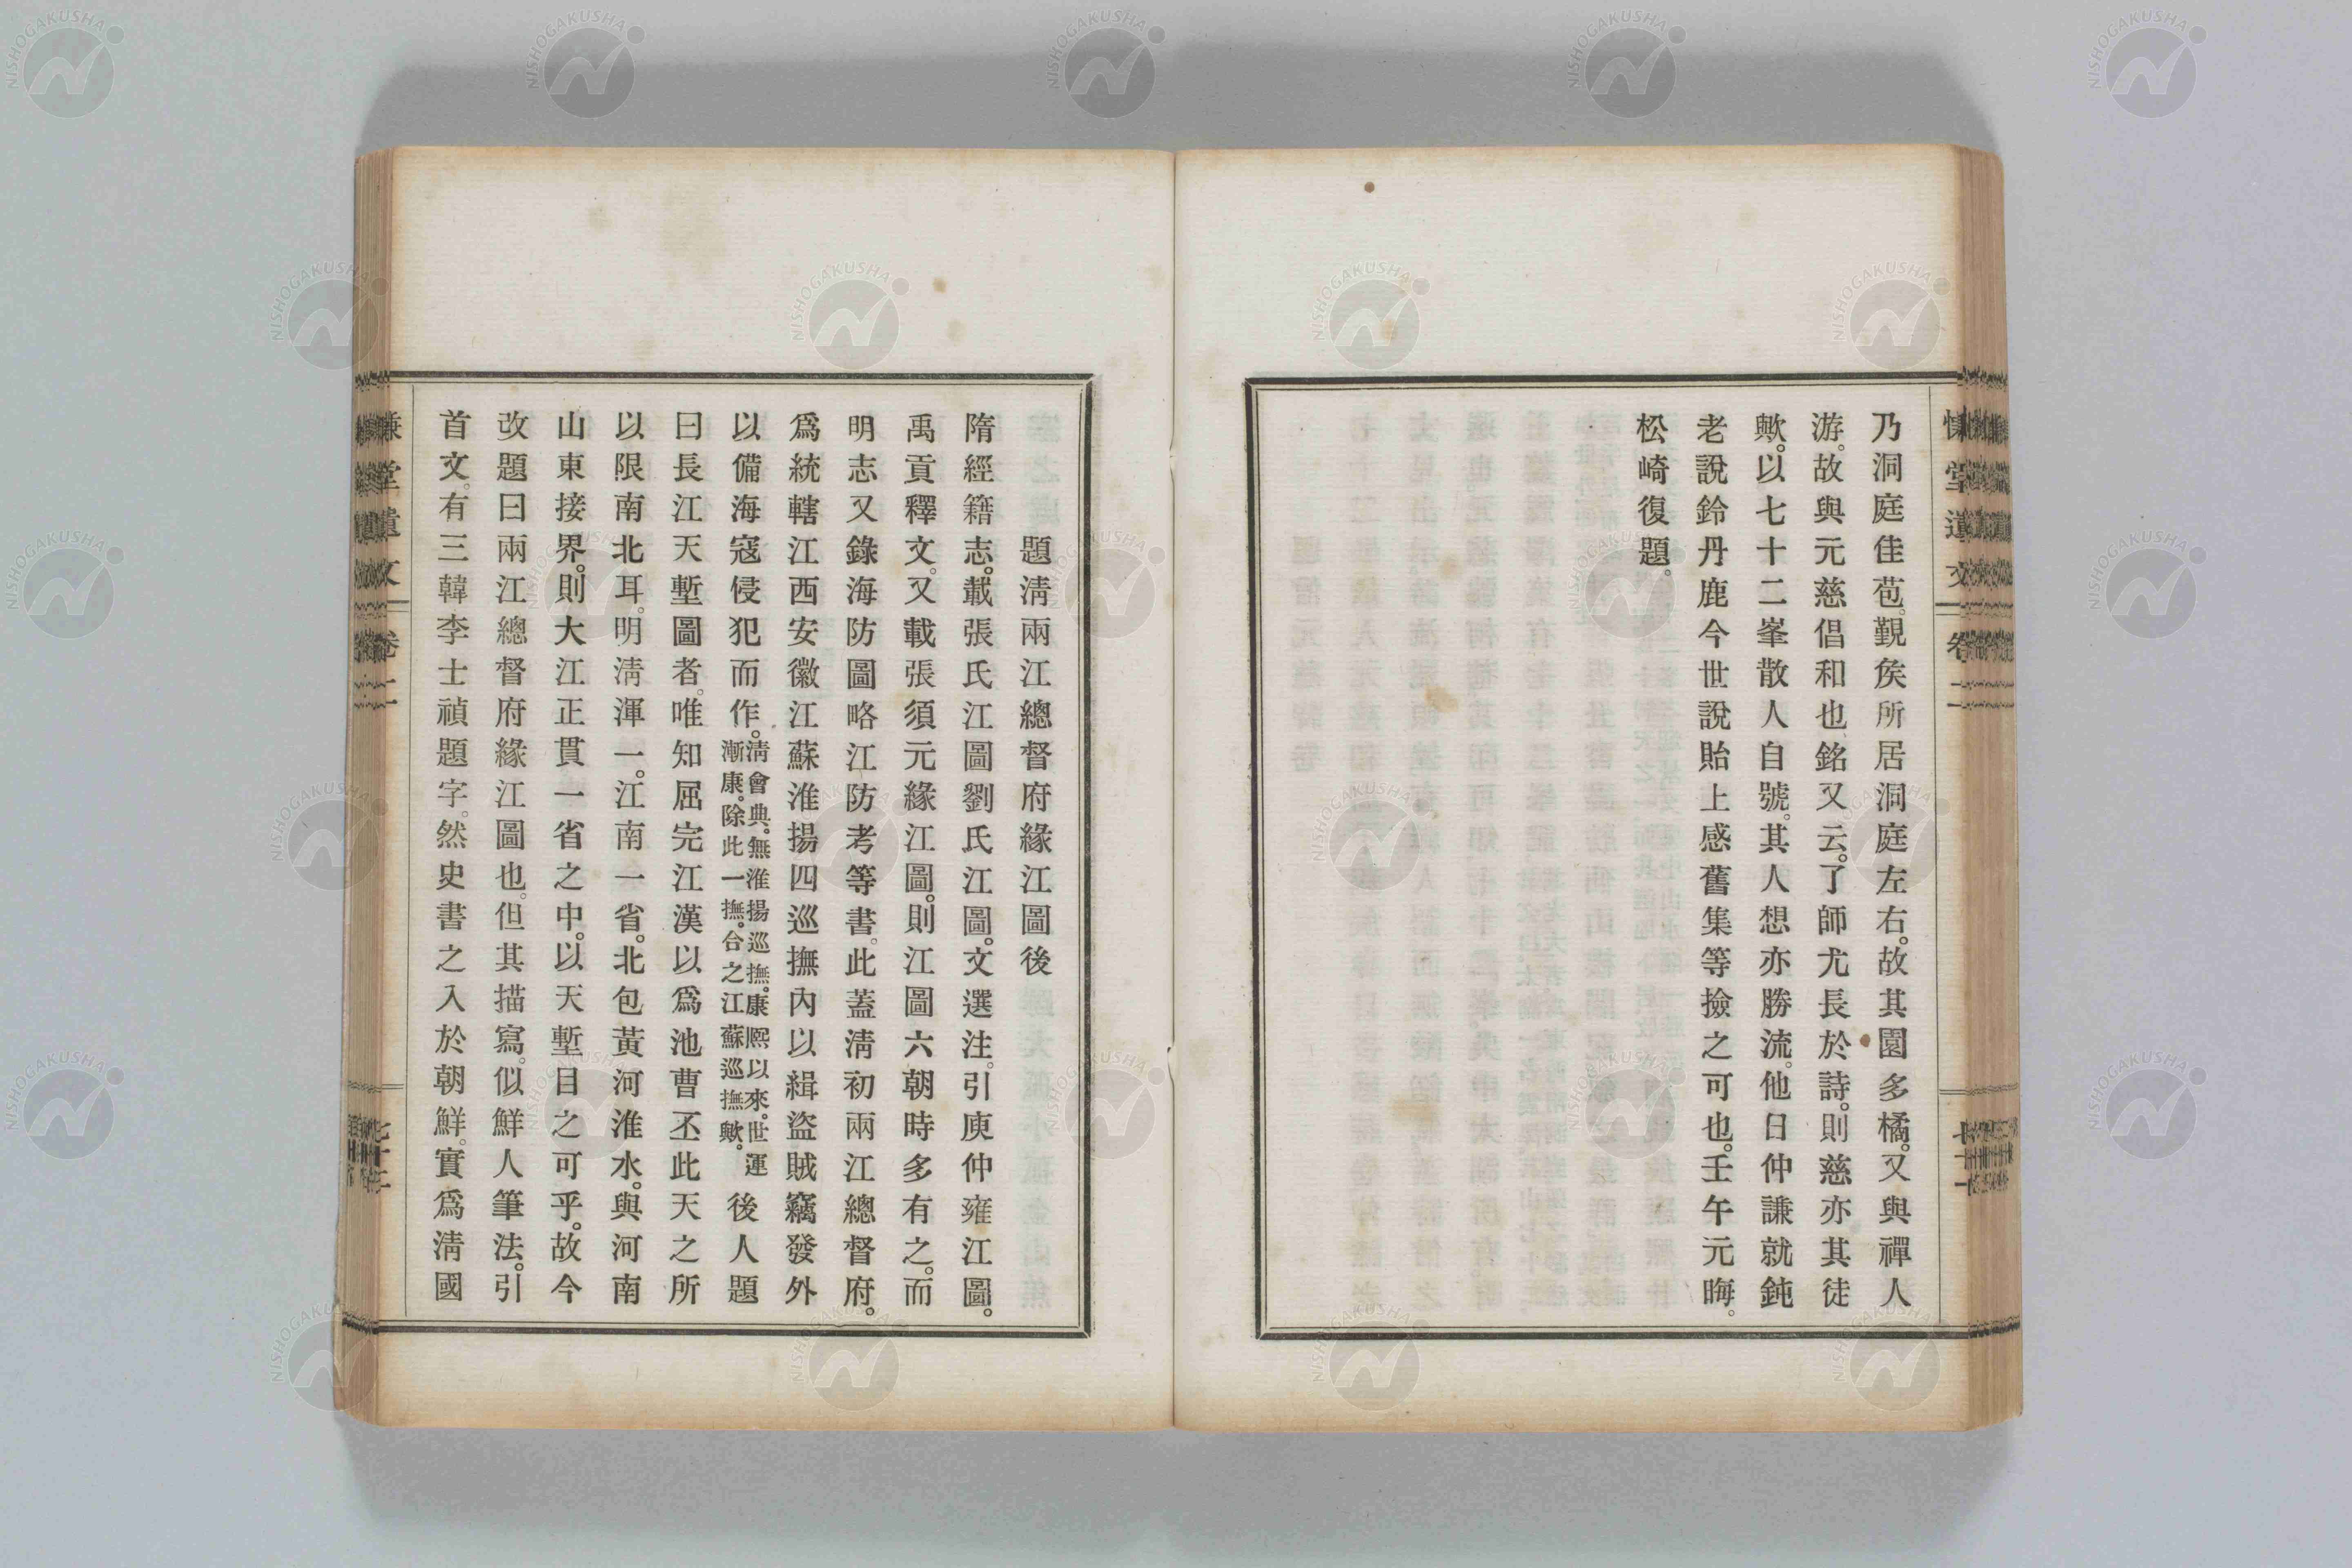 乃洞庭佳苞。覲矦所居洞庭左右。故其園多橘。又與禪人
游。故與元慈倡和也銘又云。了師尤長於詩。則慈亦其徒
歟。以七十二峯散人自號。其人想亦勝流。他日仲謙就鈍
老說鈴丹鹿今世說貽上感舊集等撿之可也。壬午元晦。
松崎復題。
題淸兩江總督府緣江圖後
隋經籍志。載張氏江圖劉氏江圖。文選注。引庾仲雍江圖。
禹貢釋文。又載張須元緣江圖。則江圖六朝時多有之。而
明志又錄海防圖略江防考等書。此蓋淸初兩江總督府。
爲統轄江西安徽江蘇淮揚四巡撫內以緝盜賊竊發外
以備海寇侵犯而作。淸會典。無淮揚巡撫。康熙以來。世運漸康。除此一撫。合之江蘇巡撫歟。後人題
曰長江天塹圖者。唯知屈完江漢以爲池曹丕此天之所
以限南北耳。明淸渾一。江南一省。北包黃河淮水。與河南
山東接界。則大江正貫一省之中。以天塹目之可乎。故今
改題曰兩江總督府緣江圖也。但其描寫。似鮮人筆法。引
首文。有三韓李士禎題字。然史書之入於朝鮮。實爲淸國
慊堂遺文 卷二 七十二
慊堂遺文 卷二
NISHOGAKUSHA